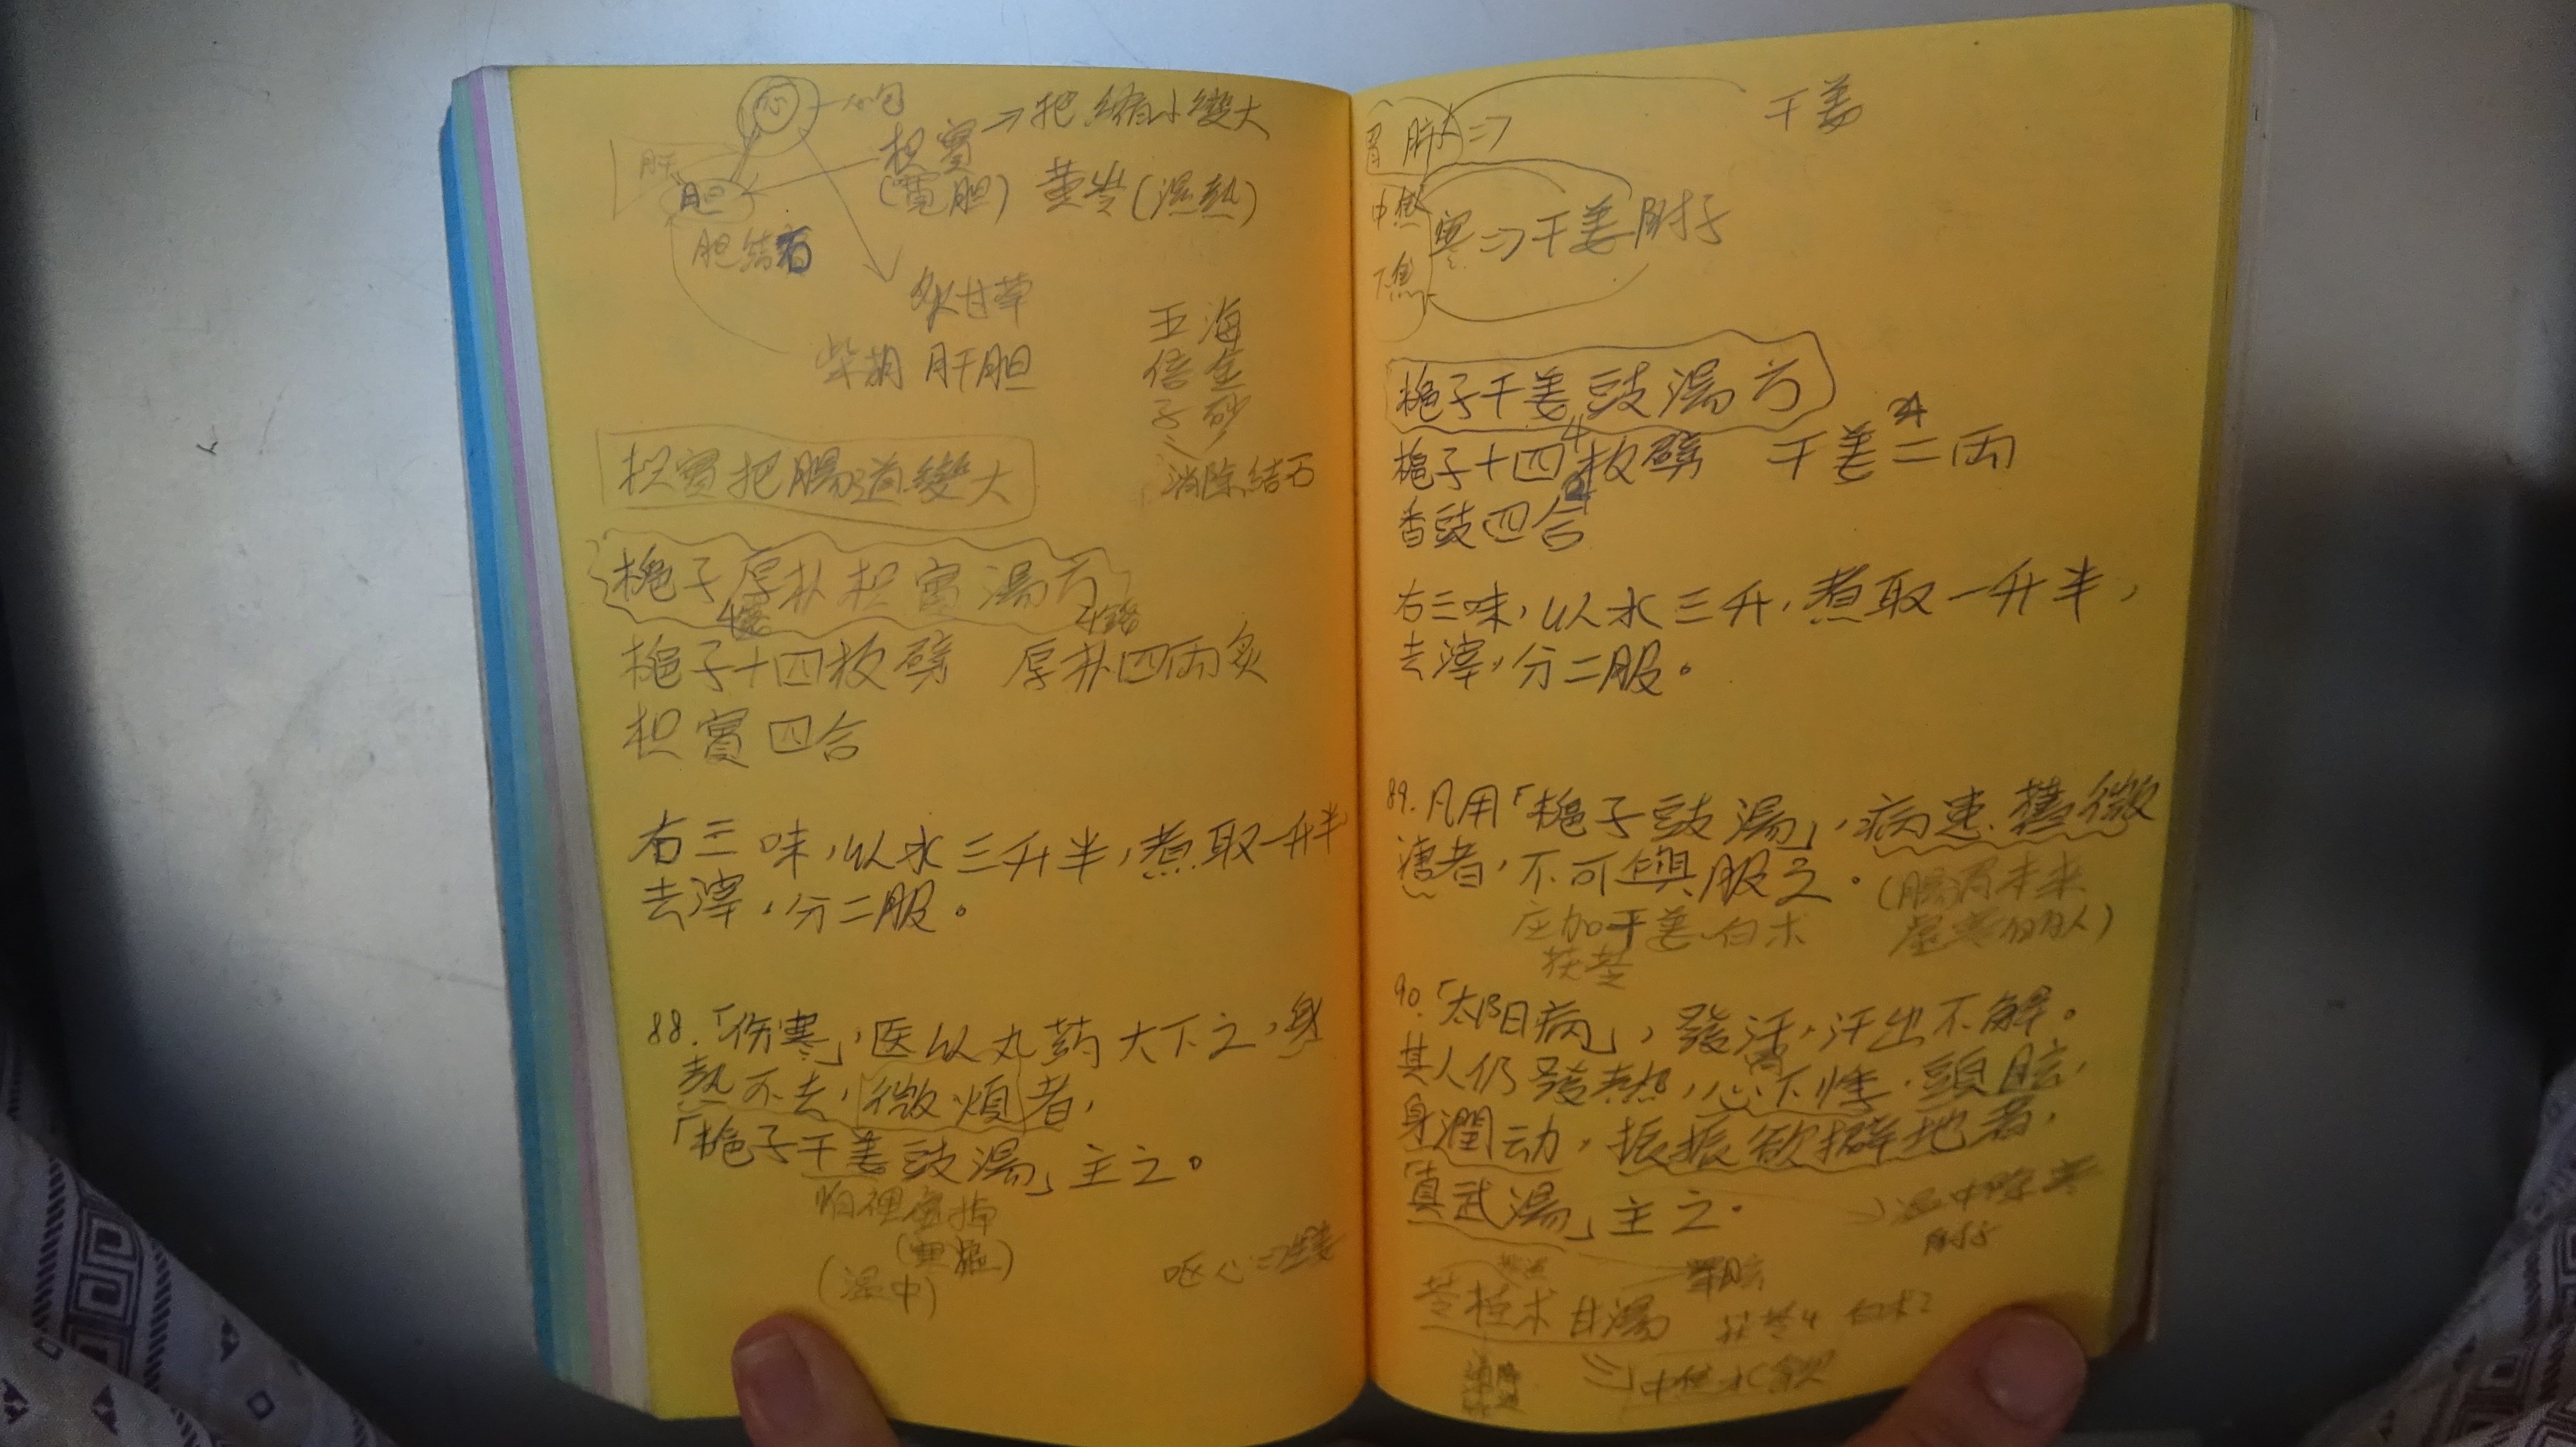 心
枳實⇒把縮小變大
肝
胆
(寬胆) 黃芩(濕熱)
胆結石
炙甘草
柴胡 肝胆
五倍子
海金砂
消除結石
枳實把腸道變大
梔子厚朴枳實湯方
4錢 4錢
梔子十四枚劈 厚朴四兩炙
枳實四合
右三味,以水三升半,煮取一升半
去滓,分二服。
88.「伤寒」,医以丸药大下之,身
熱不去,微煩者,
「梔子干姜豉湯」主之。
怕裡虛掉
(溫中)
呕心⇒生姜
干姜
胃 脾⇒
中焦
寒⇒干姜附子
下焦
梔子干姜豉湯方
梔子十四枚劈 干姜二兩
香豉四合
右三味,以水三升,煮取一升半,
去滓,分二服。
89.凡用「梔子豉湯」,病速、舊微
溏者,不可與服之。
(腸胃本來
虛寒的病人)
应加干姜、白术
茯苓
90.「太阳病」,發汗,汗出不解。
其人仍發熱,心下悸、頭眩,
胃
身潤动,振振欲擗地者,
「真武湯」主之。
溫中除寒
附子
頭眩
苓桂朮甘湯 茯苓4 白术2
中焦水飲